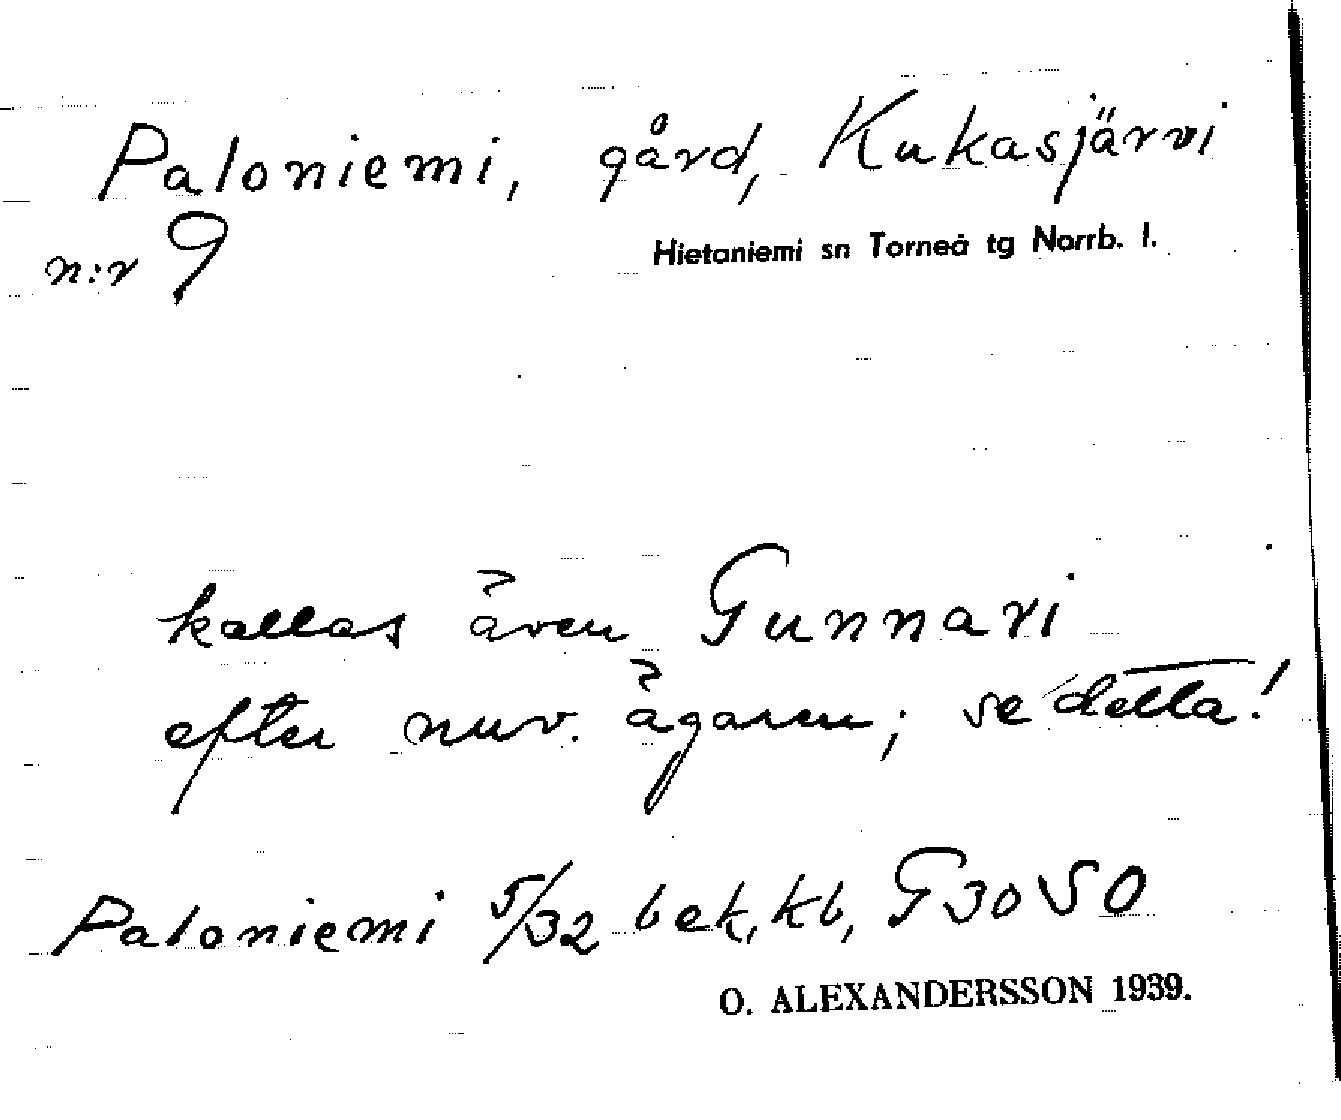 Paloniemi, gård, Kukasjärvi
n:r 9
Hietaniemi sn Torneå tg Norrb. l.
kallas även Gunnari
efter nuv. ägaren; se detta!
Paloniemi 5/32 bek, kb, G30 SO
O. ALEXANDERSSON 1939.